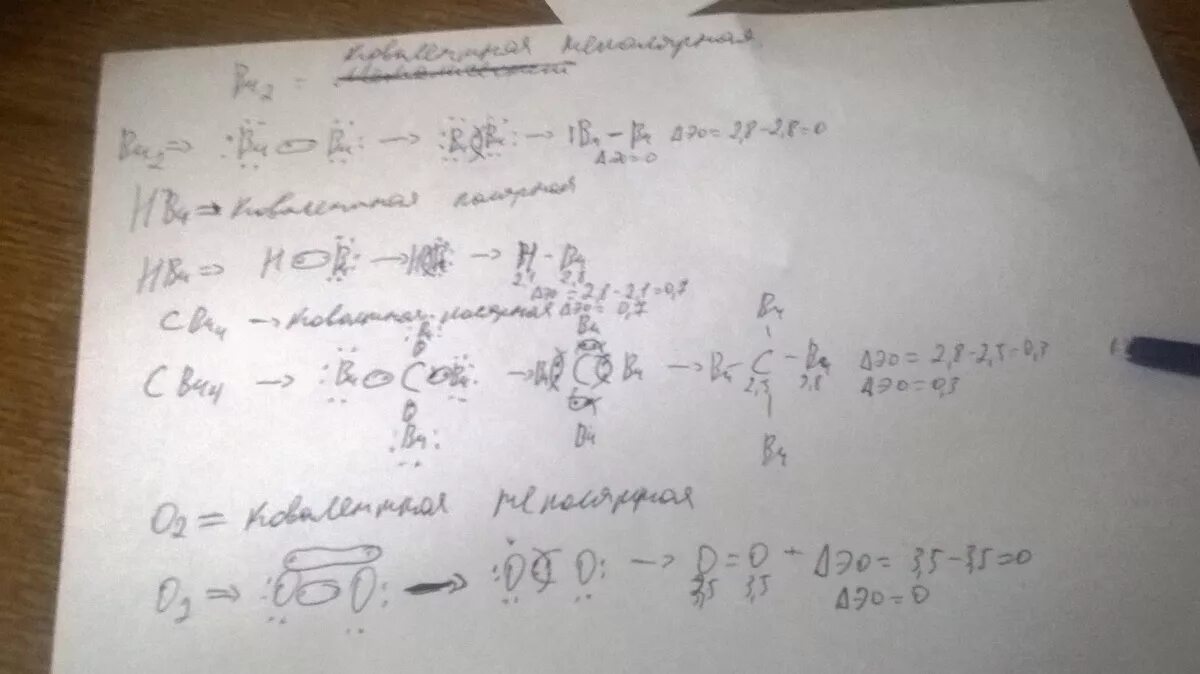 Br₂ = Ковалентная неполярная
Br₂ ⇒ Br Br → Br Br → Br – Br ΔЭО = 2,8 – 2,8 = 0
ΔЭО = 0
HBr ⇒ Ковалентная полярная
HBr ⇒ H Br → H Br → H – Br
2,1 2,8
ΔЭО = 2,8 – 2,1 = 0,7
CBr₄ → Ковалентная полярная ΔЭО = 0,7
Br Br Br
CBr₄ → Br C Br → Br C Br → Br – C – Br ΔЭО = 2,8 – 2,5 = 0,3
2,5 2,8 ΔЭО = 0,3
Br Br Br
O₂ = Ковалентная неполярная
O₂ ⇒ O O → O O → O = O ΔЭО = 3,5 – 3,5 = 0
3,5 3,5 ΔЭО = 0